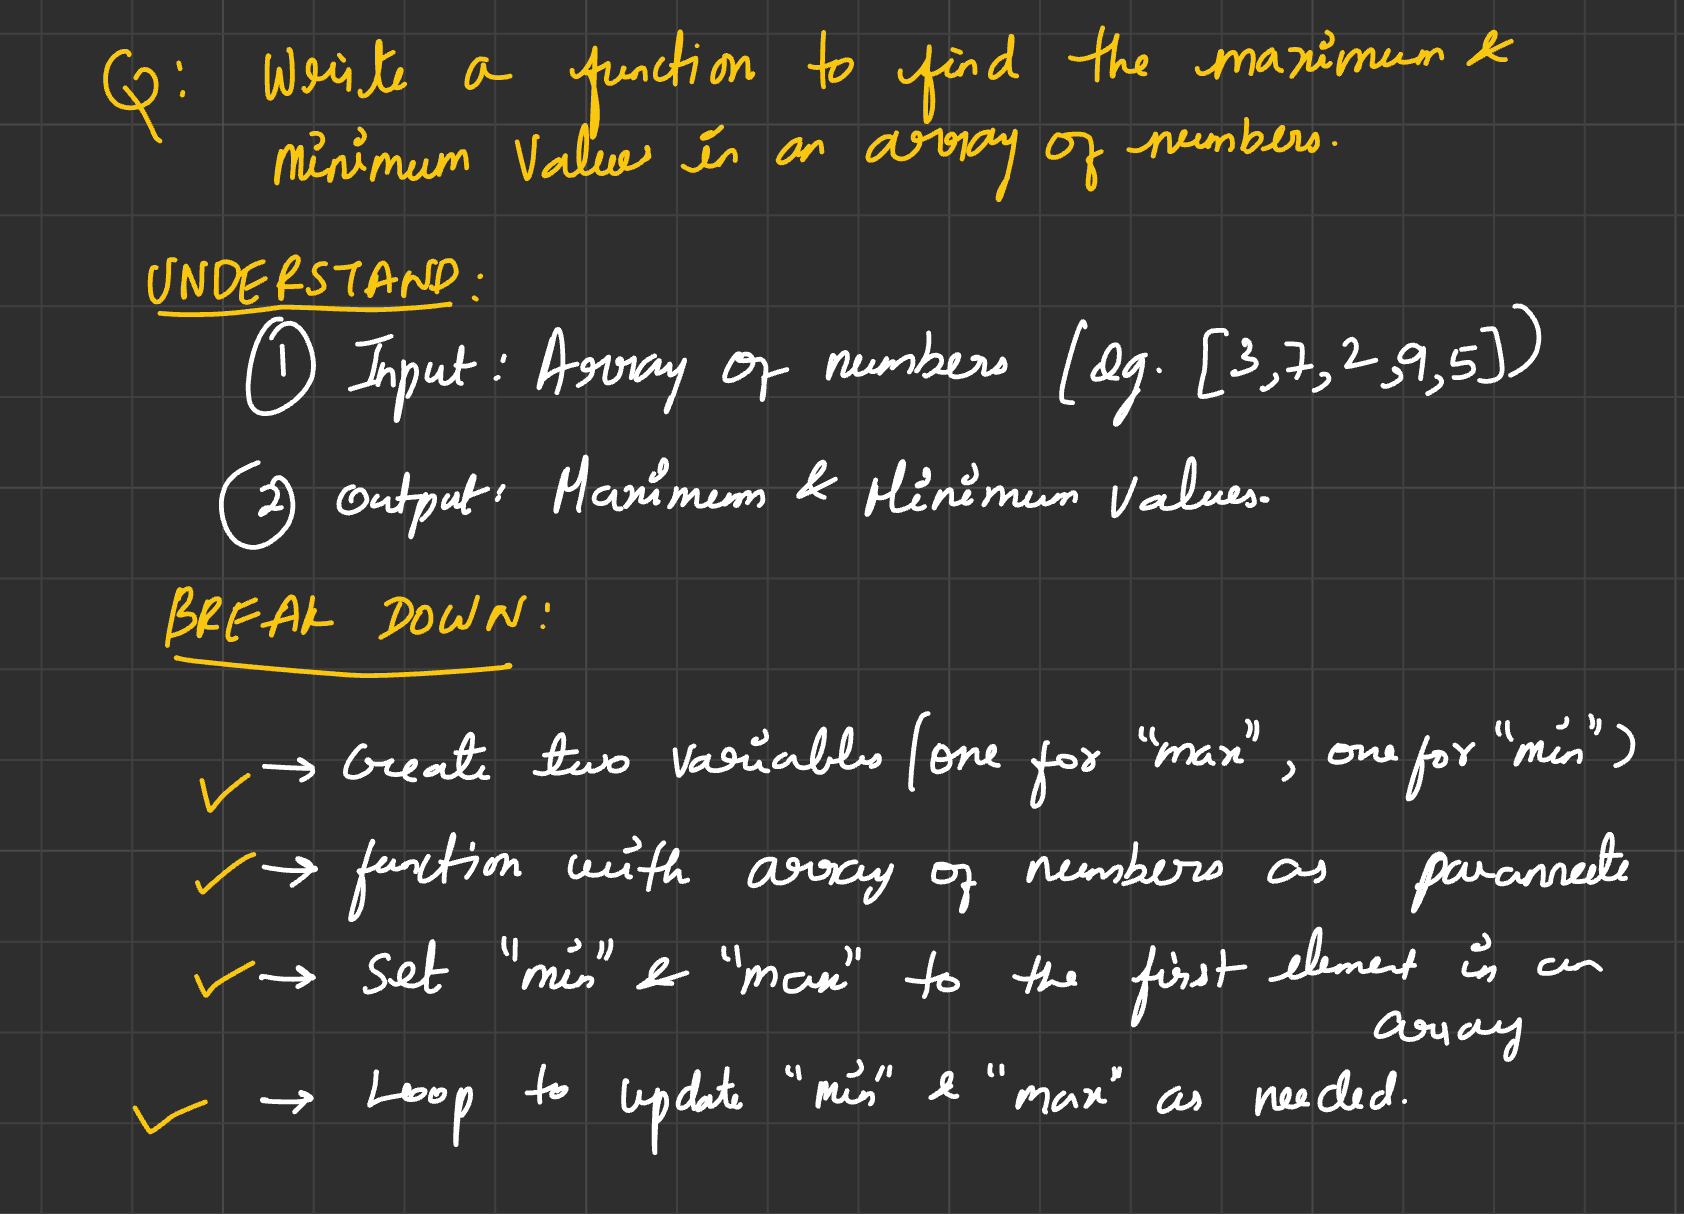 Q: Write a function to find the maximum &
minimum values in an array of numbers.
UNDERSTAND:
① Input: Array of numbers (eg. [3,7,2,9,5])
② Output: Maximum & Minimum values.
BREAK DOWN:
✓ → Create two variables (one for "max", one for "min")
✓ → function with array of numbers as paramete
✓ → Set "min" & "max" to the first element in an
array
✓ → Loop to update "min" & "max" as needed.